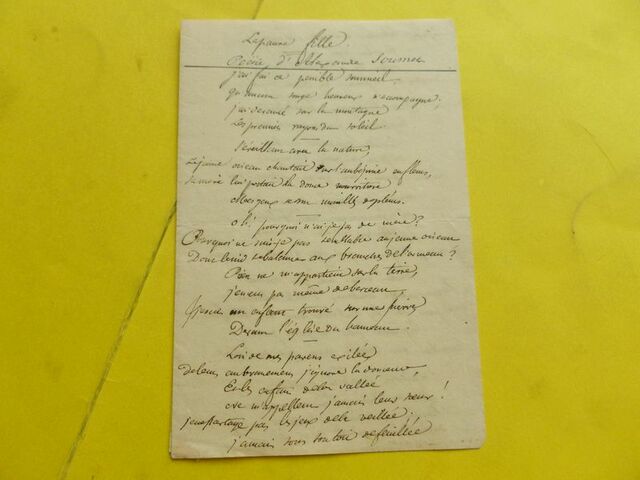 La pauvre fille.
Poésie d'Alexandre Soumet
j'ai fui ce pénible sommeil
Qu'aucun songe heureux n'accompagne;
j'ai devancé sur la montagne
Les premiers rayons du soleil
S'éveillant avec la nature,
Le jeune oiseau chantait sur l'aubépine en fleurs,
Sa mère lui portait la douce nourriture
Mes yeux se sont mouillés de pleurs.
oh! pourquoi n'ai-je pas de mère?
Pourquoi ne suis-je pas semblable au jeune oiseau
Dont le nid se balance aux branches de l'ormeau?
Rien ne m'appartient sur la terre,
je n'eus pas même de berceau,
Et je suis un enfant trouvé sur une pierre
Devant l'église du hameau.
Loin de mes parens exilée
De leurs embrassemens j'ignore la douceur,
Et les enfans de la vallée
Ne m'appellent jamais leur sœur!
je ne partage pas les jeux de la veillée;
jamais sous son toit de feuillée